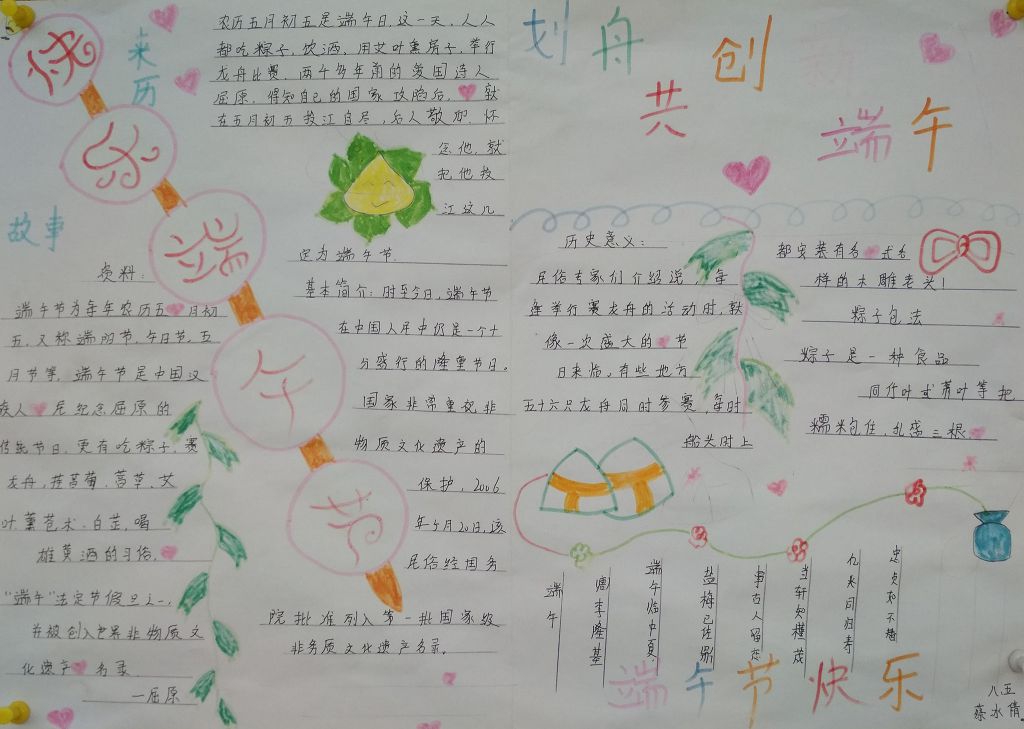 快乐端午节
来历
农历五月初五是端午日,这一天,人人
都吃粽子、饮酒、用艾叶熏房子,举行
龙舟比赛.两千多年前的爱国诗人
屈原,得知自己的国家攻陷后,就
在五月初五投江自尽,后人敬仰、怀
念他,就
把他投
江这儿
定为端午节.
基本简介:时至今日,端午节
在中国人民中仍是一个十
分盛行的隆重节日。
国家非常重视非
物质文化遗产的
保护,2006
年5月20日,该
民俗经国务
院批准列入第一批国家级
非务质文化遗产名录.
故事
资料:
端午节为每年农历五月初
五,又称端阳节、午日节、五
月节等,端午节是中国汉
族人民纪念屈原的
传统节日,更有吃粽子,赛
龙舟,挂菖蒲、蒿草、艾
叶、薰苍术、白芷,喝
雄黄酒的习俗,
“端午”法定节假日之一,
并被创入世界非物质文
化遗产名录.
一屈原
划舟共创端午
历史意义:
民俗专家们介绍说,每
逢举行赛龙舟的活动时,就
像一次盛大的节
日来临,有些地方
五十六只龙舟同时参赛,每时
船头时上
都安装有各式各
样的木雕老头!
粽子包法
粽子是一种食品
同竹叶或苇叶等把
糯米包住,扎成三根
端午
唐李隆基
端午临中夏
盐梅已佐鼎
事古人留迹
当轩知槿茂
亿兆同归寿
忠贞如不替
端午节快乐
八五
蔡冰倩